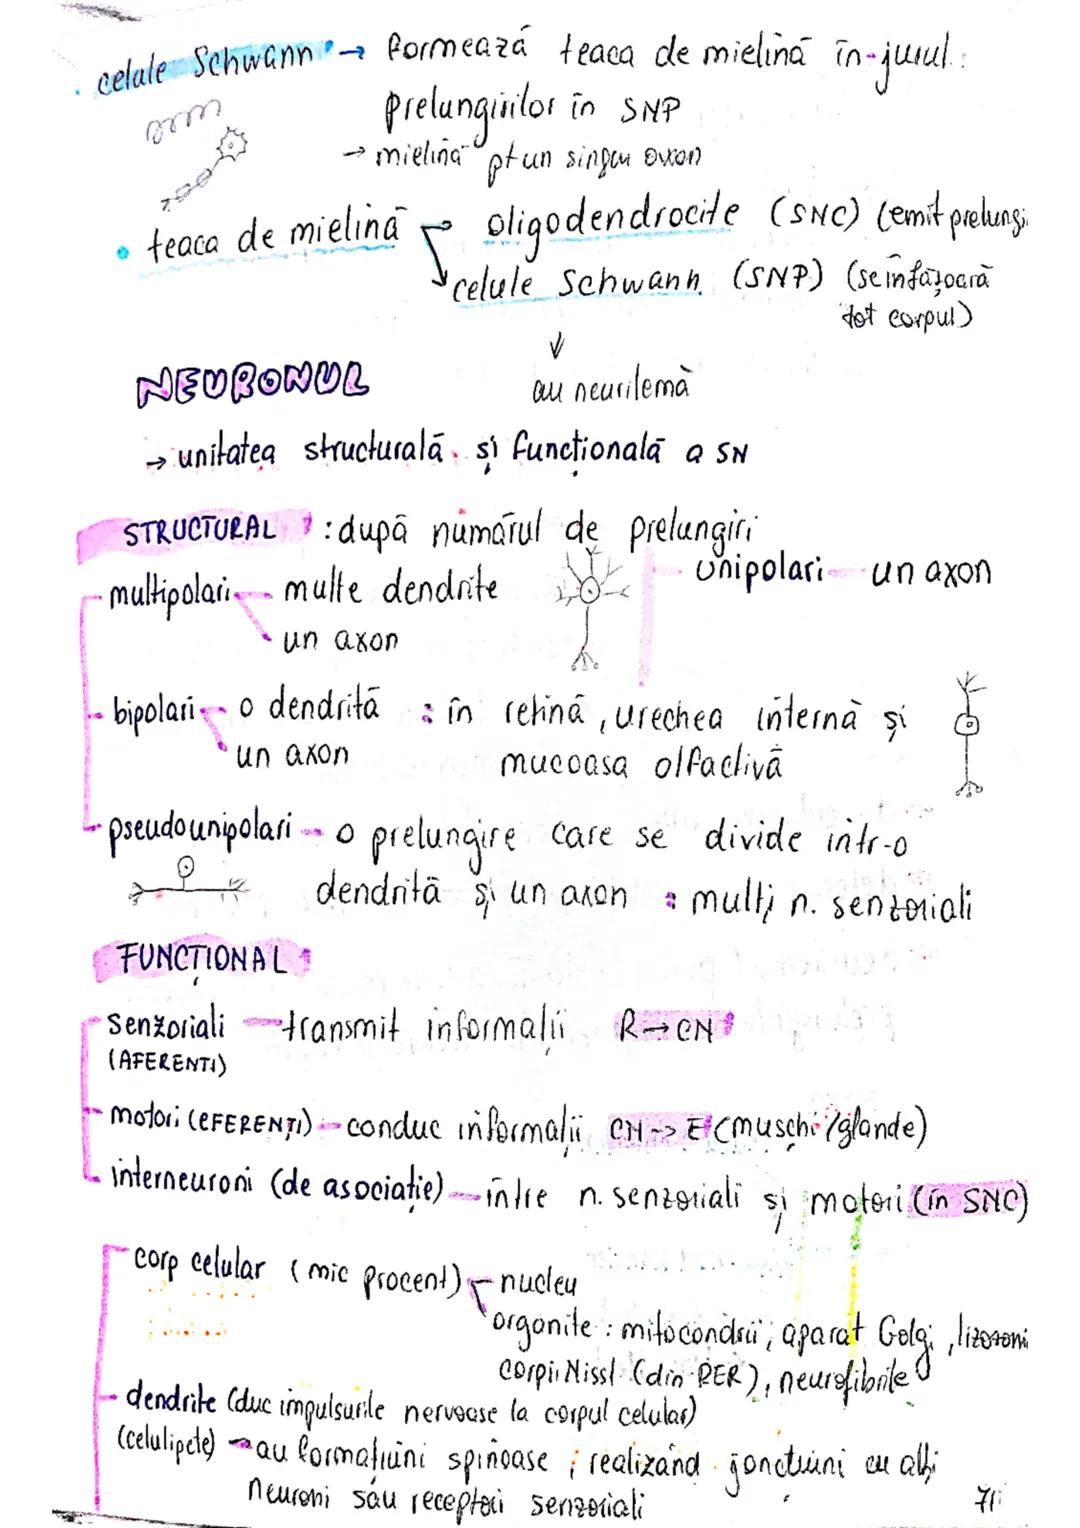 • celule Schwann → formează teaca de mielină în-jurul
prelungirilor în SNP
→ mielină pt un singur axon
• teaca de mielină → oligodendrocite (SNC) (emit prelungi
→ celule Schwann (SNP) (se înfășoară
tot corpul)
↓
au neurilemă
NEURONUL
→ unitatea structurală și funcțională a SN
STRUCTURAL : după numărul de prelungiri
multipolari - multe dendrite
un axon
unipolari - un axon
bipolari - o dendrită : în retină, urechea internă și
un axon mucoasa olfactivă
pseudounipolari - o prelungire care se divide într-o
dendrită și un axon : mulți n. senzoriali
FUNCȚIONAL
senzoriali - transmit informații R → CN
(AFERENȚI)
motori (EFERENȚI) - conduc informații CN -> E (mușchi/glande)
interneuroni (de asociație) - între n. senzoriali și motori (în SNC)
corp celular (mic procent) - nucleu
organite : mitocondrii, aparat Golgi, lizozomi
corpii Nissl (din RER), neurofibrile
dendrite (duc impulsurile nervoase la corpul celular)
(celulipete) → au formațiuni spinoase ; realizând joncțiuni cu alți
neuroni sau receptori senzoriali
71